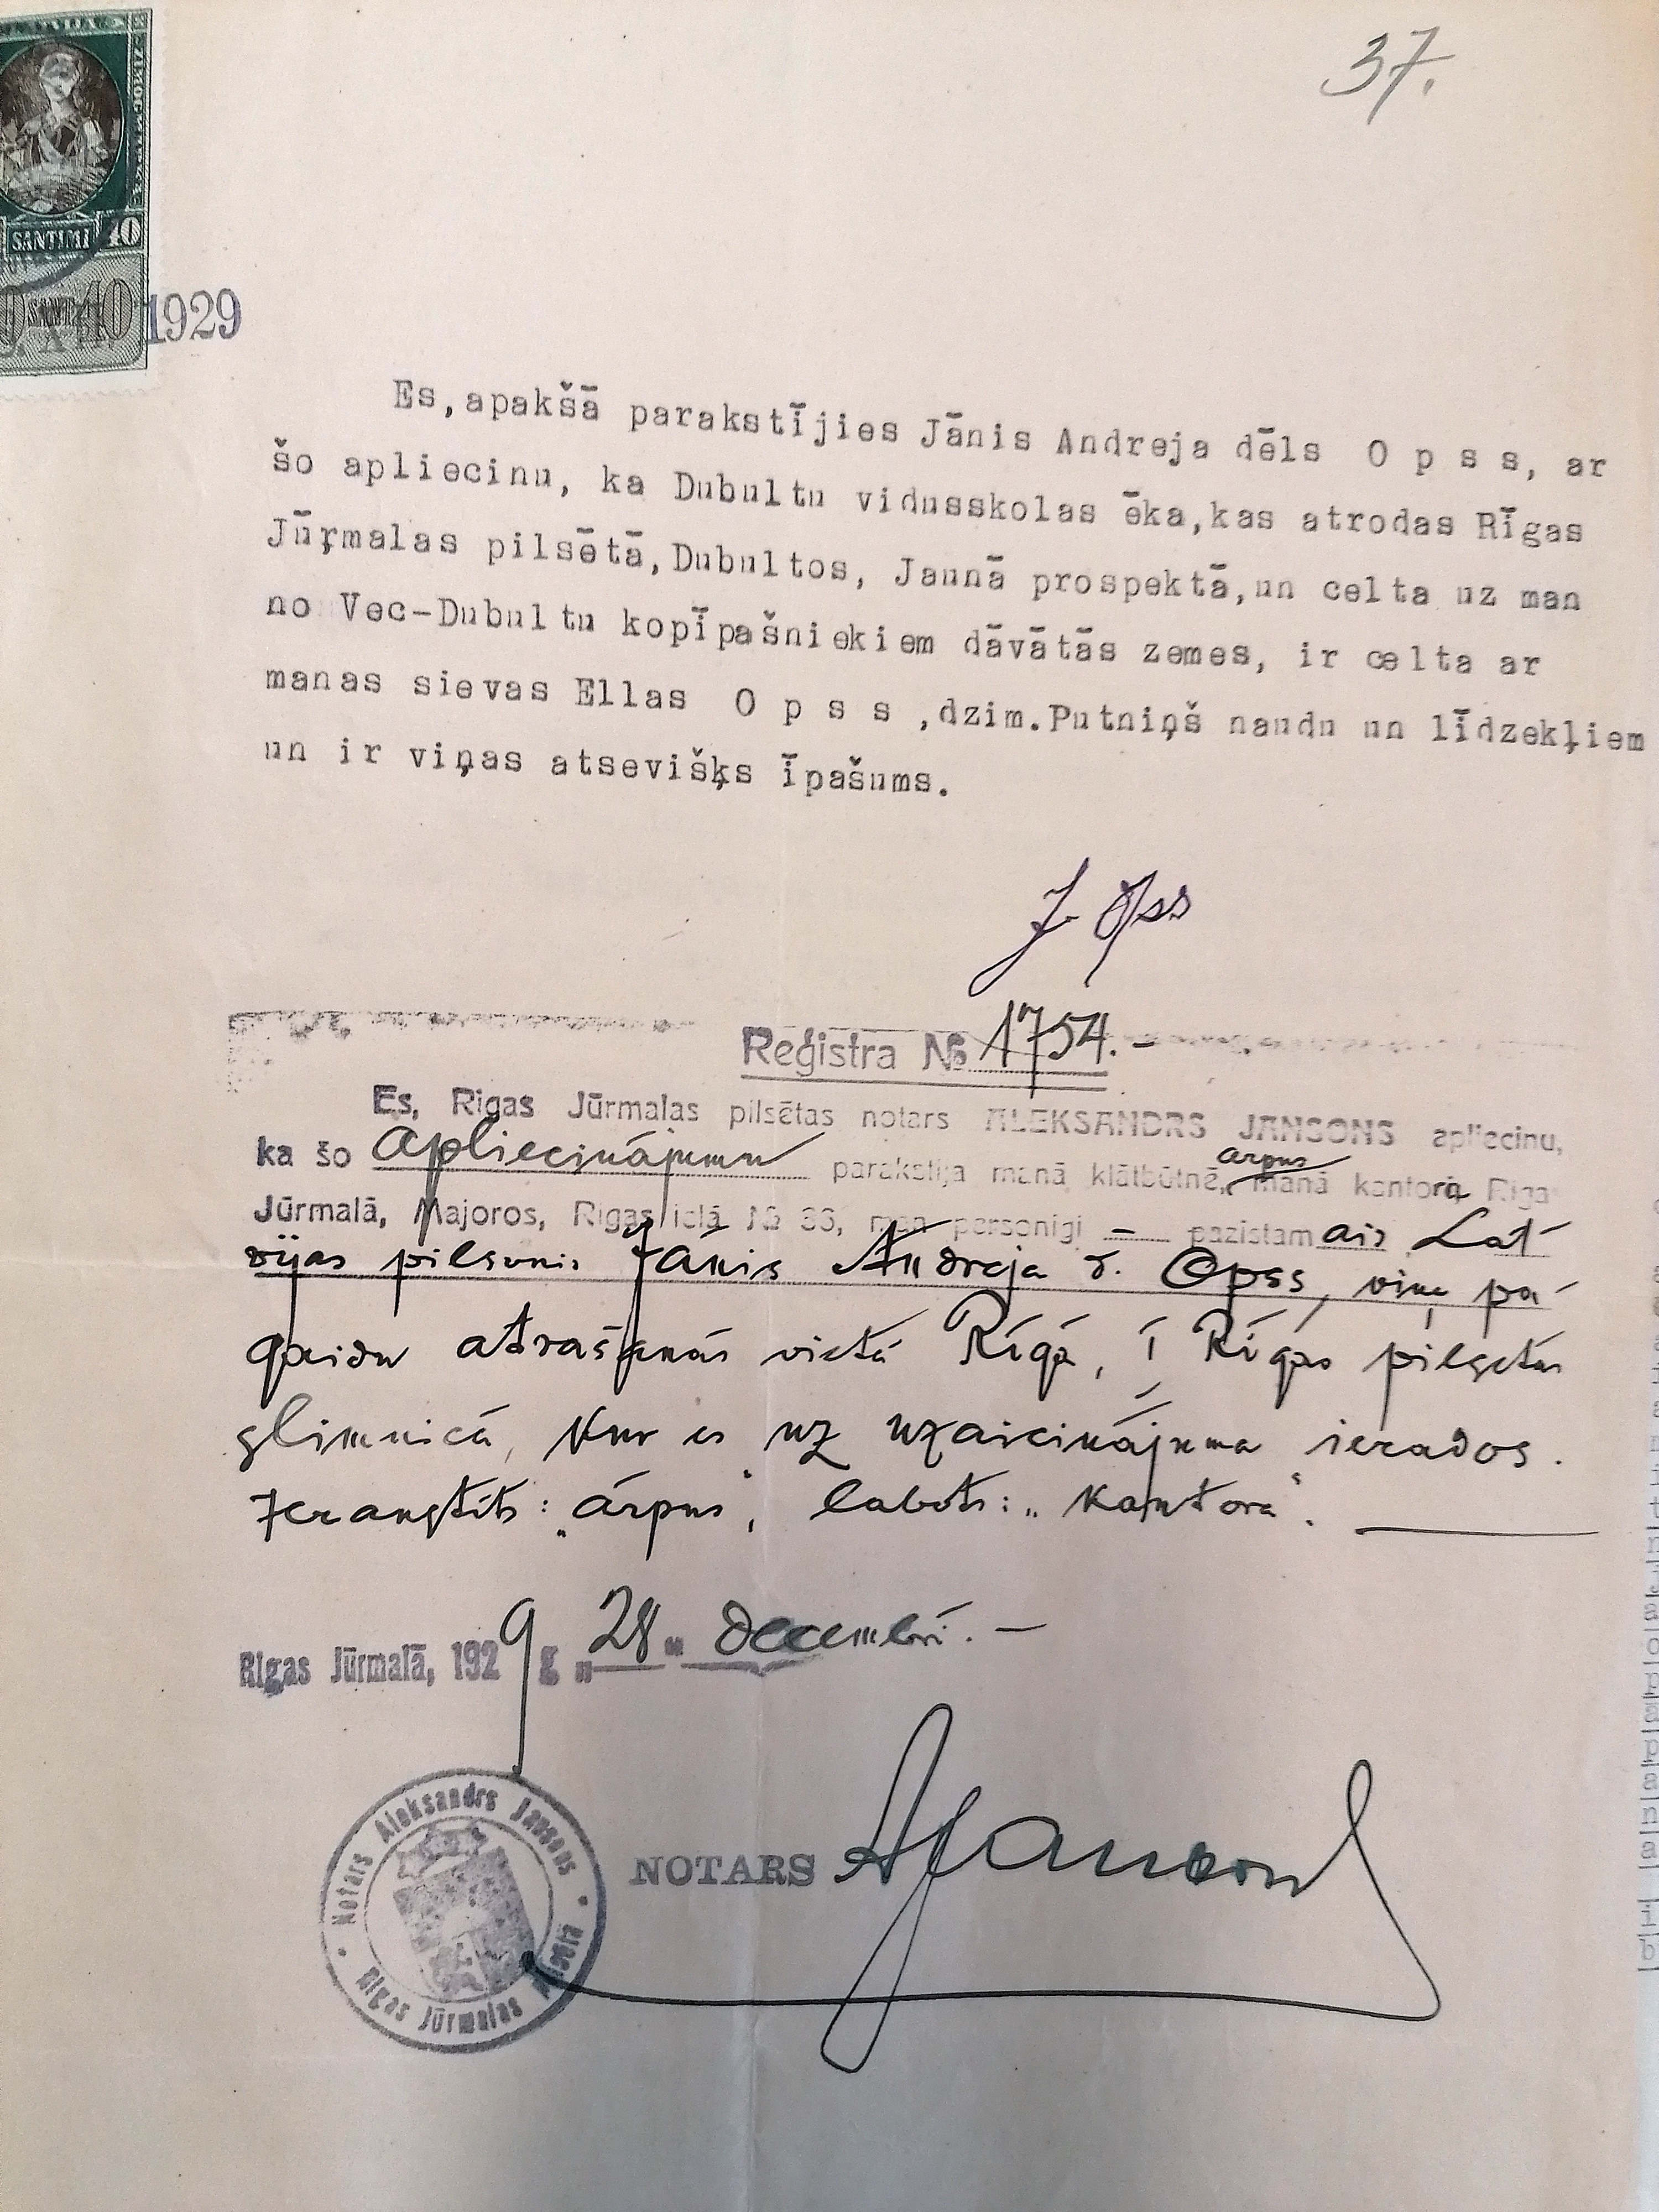 37.
SANTIMI 40
40 1929
Es,apakšā parakstījies Jānis Andreja dēls O p s s, ar
šo apliecinu, ka Dubultu vidusskolas ēka,kas atrodas Rīgas
Jūŗmalas pilsētā,Dubultos, Jaunā prospektā,un celta uz man
no Vec-Dubultu kopīpašniekiem dāvātās zemes, ir celta ar
manas sievas Ellas O p s s ,dzim.Putniņš naudu un līdzekļiem
un ir viņas atsevišķs īpašums.
J. Opss
Reģistra № 1754.-
Es, Rīgas Jūrmalas pilsētas notars ALEKSANDRS JANSONS apliecinu,
ārpus
ka šo Apliecinājumu parakstīja manā klātbūtnē, manā kantora Rīgas
Jūrmalā, Majoros, Rīgas ielā № 36, man personīgi — pazīstamais Lat-
vijas pilsonis Jānis Andreja d. Opss, viņu pa-
gaidu atrašanās vietā Rīgā, I Rīgas pilsētas
slimnicā, kur es uz uzaicinājuma ierados.
Ierakstīts: „ārpus“, labots: „kantora“.
Rīgas Jūrmalā, 1929 g. „28“ decembrī.-
NOTARS AJansons
Notars Aleksandrs Jansons
Rīgas Jūrmalas pilsētā